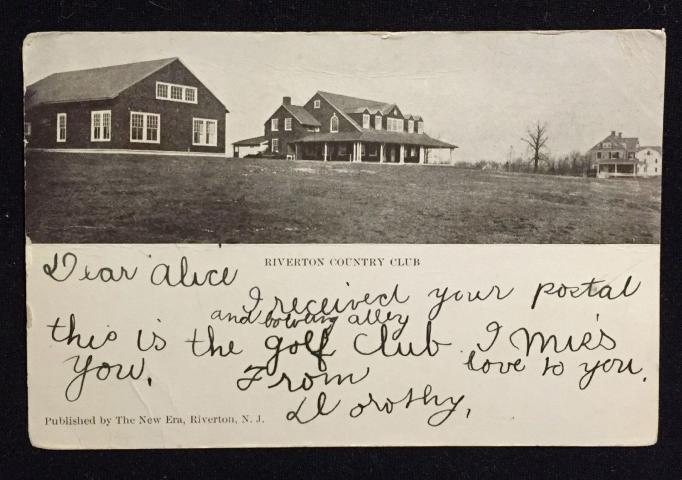 RIVERTON COUNTRY CLUB
Dear Alice
I received your postal
and bowling alley
this is the golf club I Mie's
You. love to you.
From
Dorothy,
Published by The New Era, Riverton, N. J.